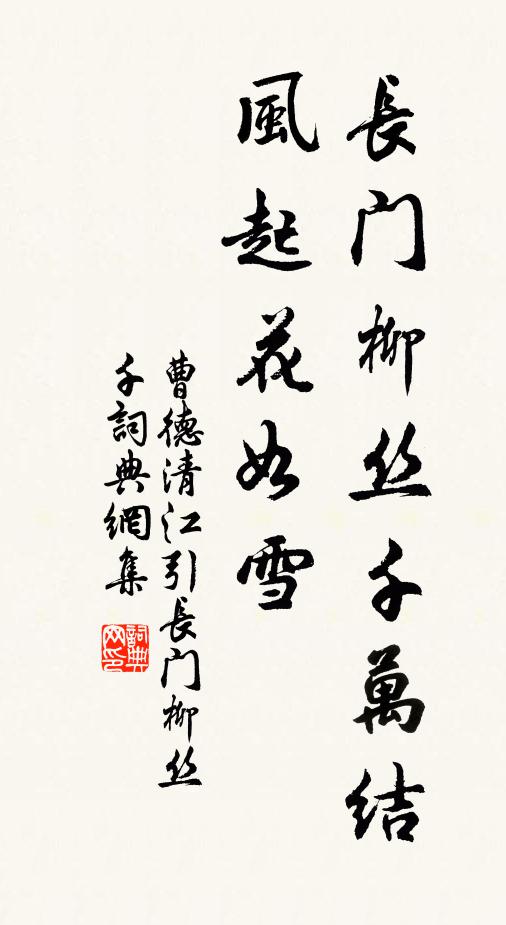 長门柳丝千萬结
風起花如雪
曹德清江引長门柳丝
千詞典網集
詞典网印